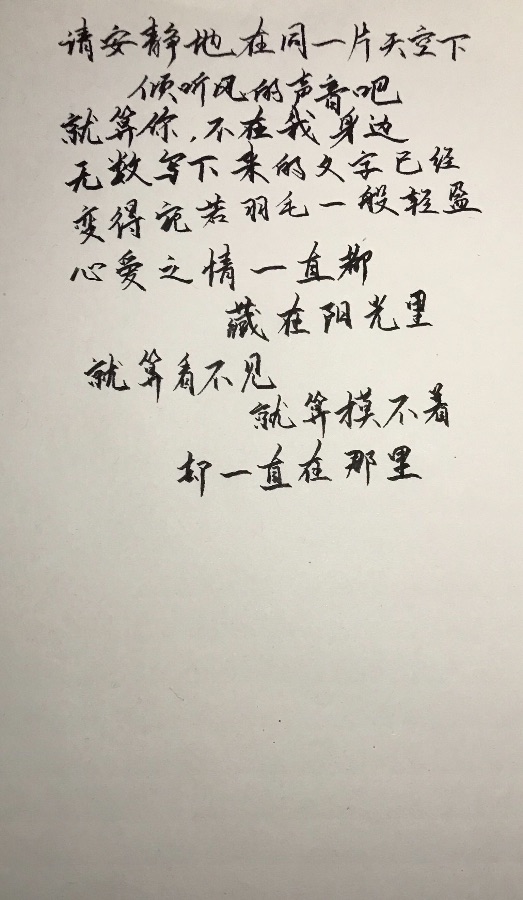 请安静地在同一片天空下
倾听风的声音吧
就算你，不在我身边
无数写下来的文字已经
变得宛若羽毛一般轻盈
心爱之情一直都
藏在阳光里
就算看不见
就算摸不着
却一直在那里